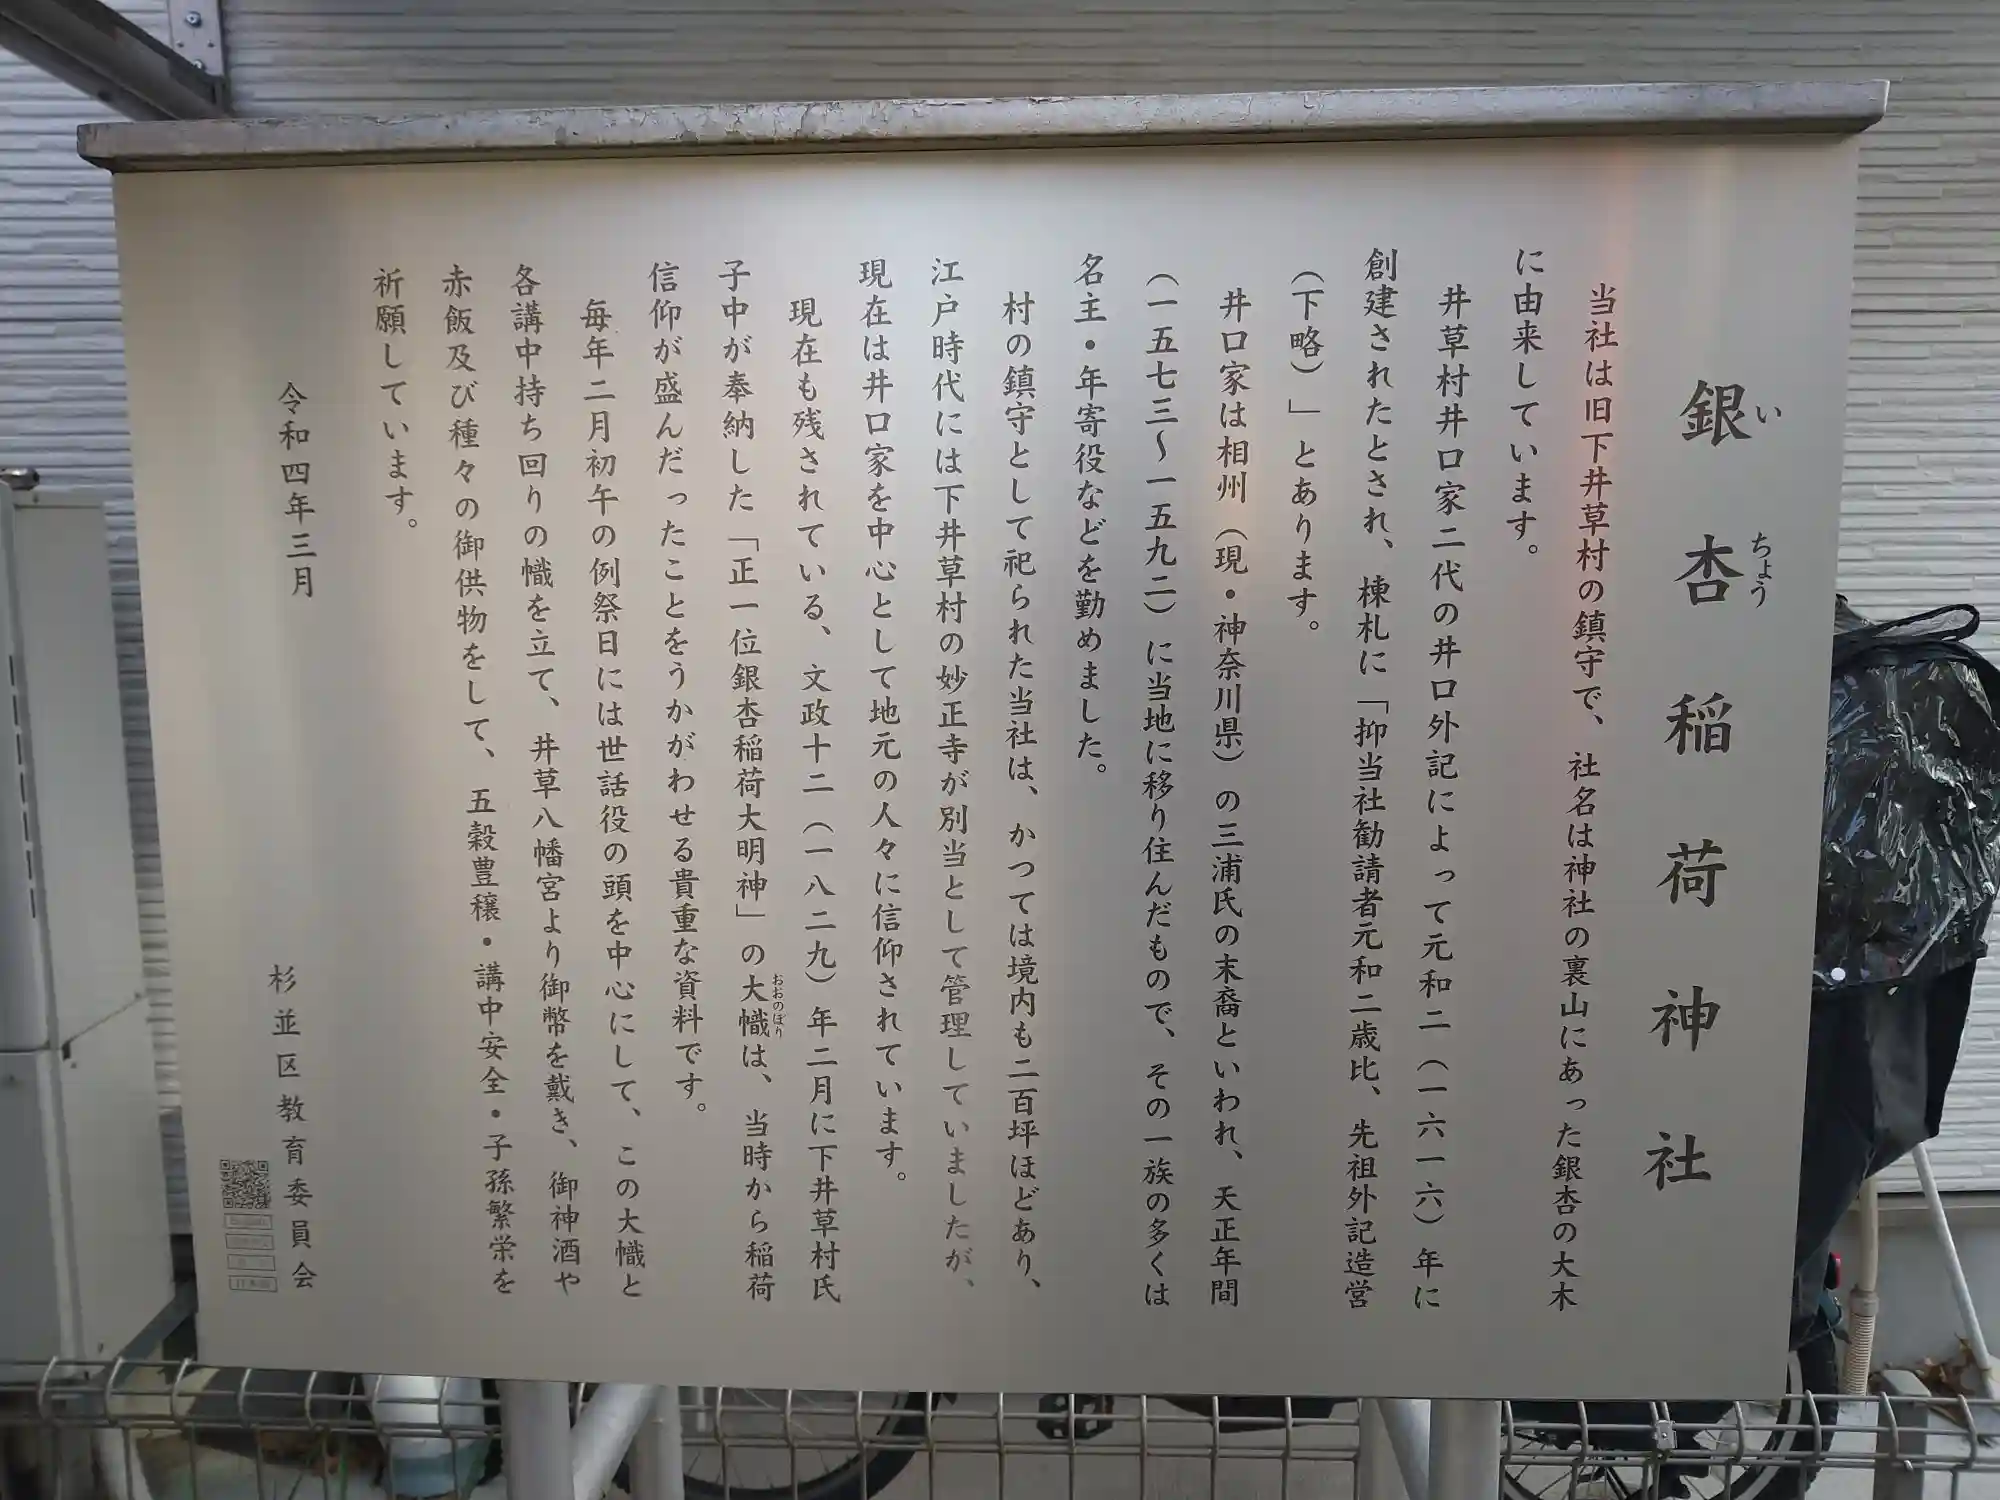 銀杏稲荷神社
いちょう
当社は旧下井草村の鎮守で、社名は神社の裏山にあった銀杏の大木
に由来しています。
井草村井口家二代の井口外記によって元和二（一六一六）年に
創建されたとされ、棟札に「抑当社勧請者元和二歳比、先祖外記造営
（下略）」とあります。
井口家は相州（現・神奈川県）の三浦氏の末裔といわれ、天正年間
（一五七三～一五九二）に当地に移り住んだもので、その一族の多くは
名主・年寄役などを勤めました。
村の鎮守として祀られた当社は、かつては境内も二百坪ほどあり、
江戸時代には下井草村の妙正寺が別当として管理していましたが、
現在は井口家を中心として地元の人々に信仰されています。
現在も残されている、文政十二（一八二九）年二月に下井草村氏
子中が奉納した「正一位銀杏稲荷大明神」の大幟は、当時から稲荷
おおのぼり
信仰が盛んだったことをうかがわせる貴重な資料です。
毎年二月初午の例祭日には世話役の頭を中心にして、この大幟と
各講中持ち回りの幟を立て、井草八幡宮より御幣を戴き、御神酒や
赤飯及び種々の御供物をして、五穀豊穣・講中安全・子孫繁栄を
祈願しています。
令和四年三月
杉並区教育委員会